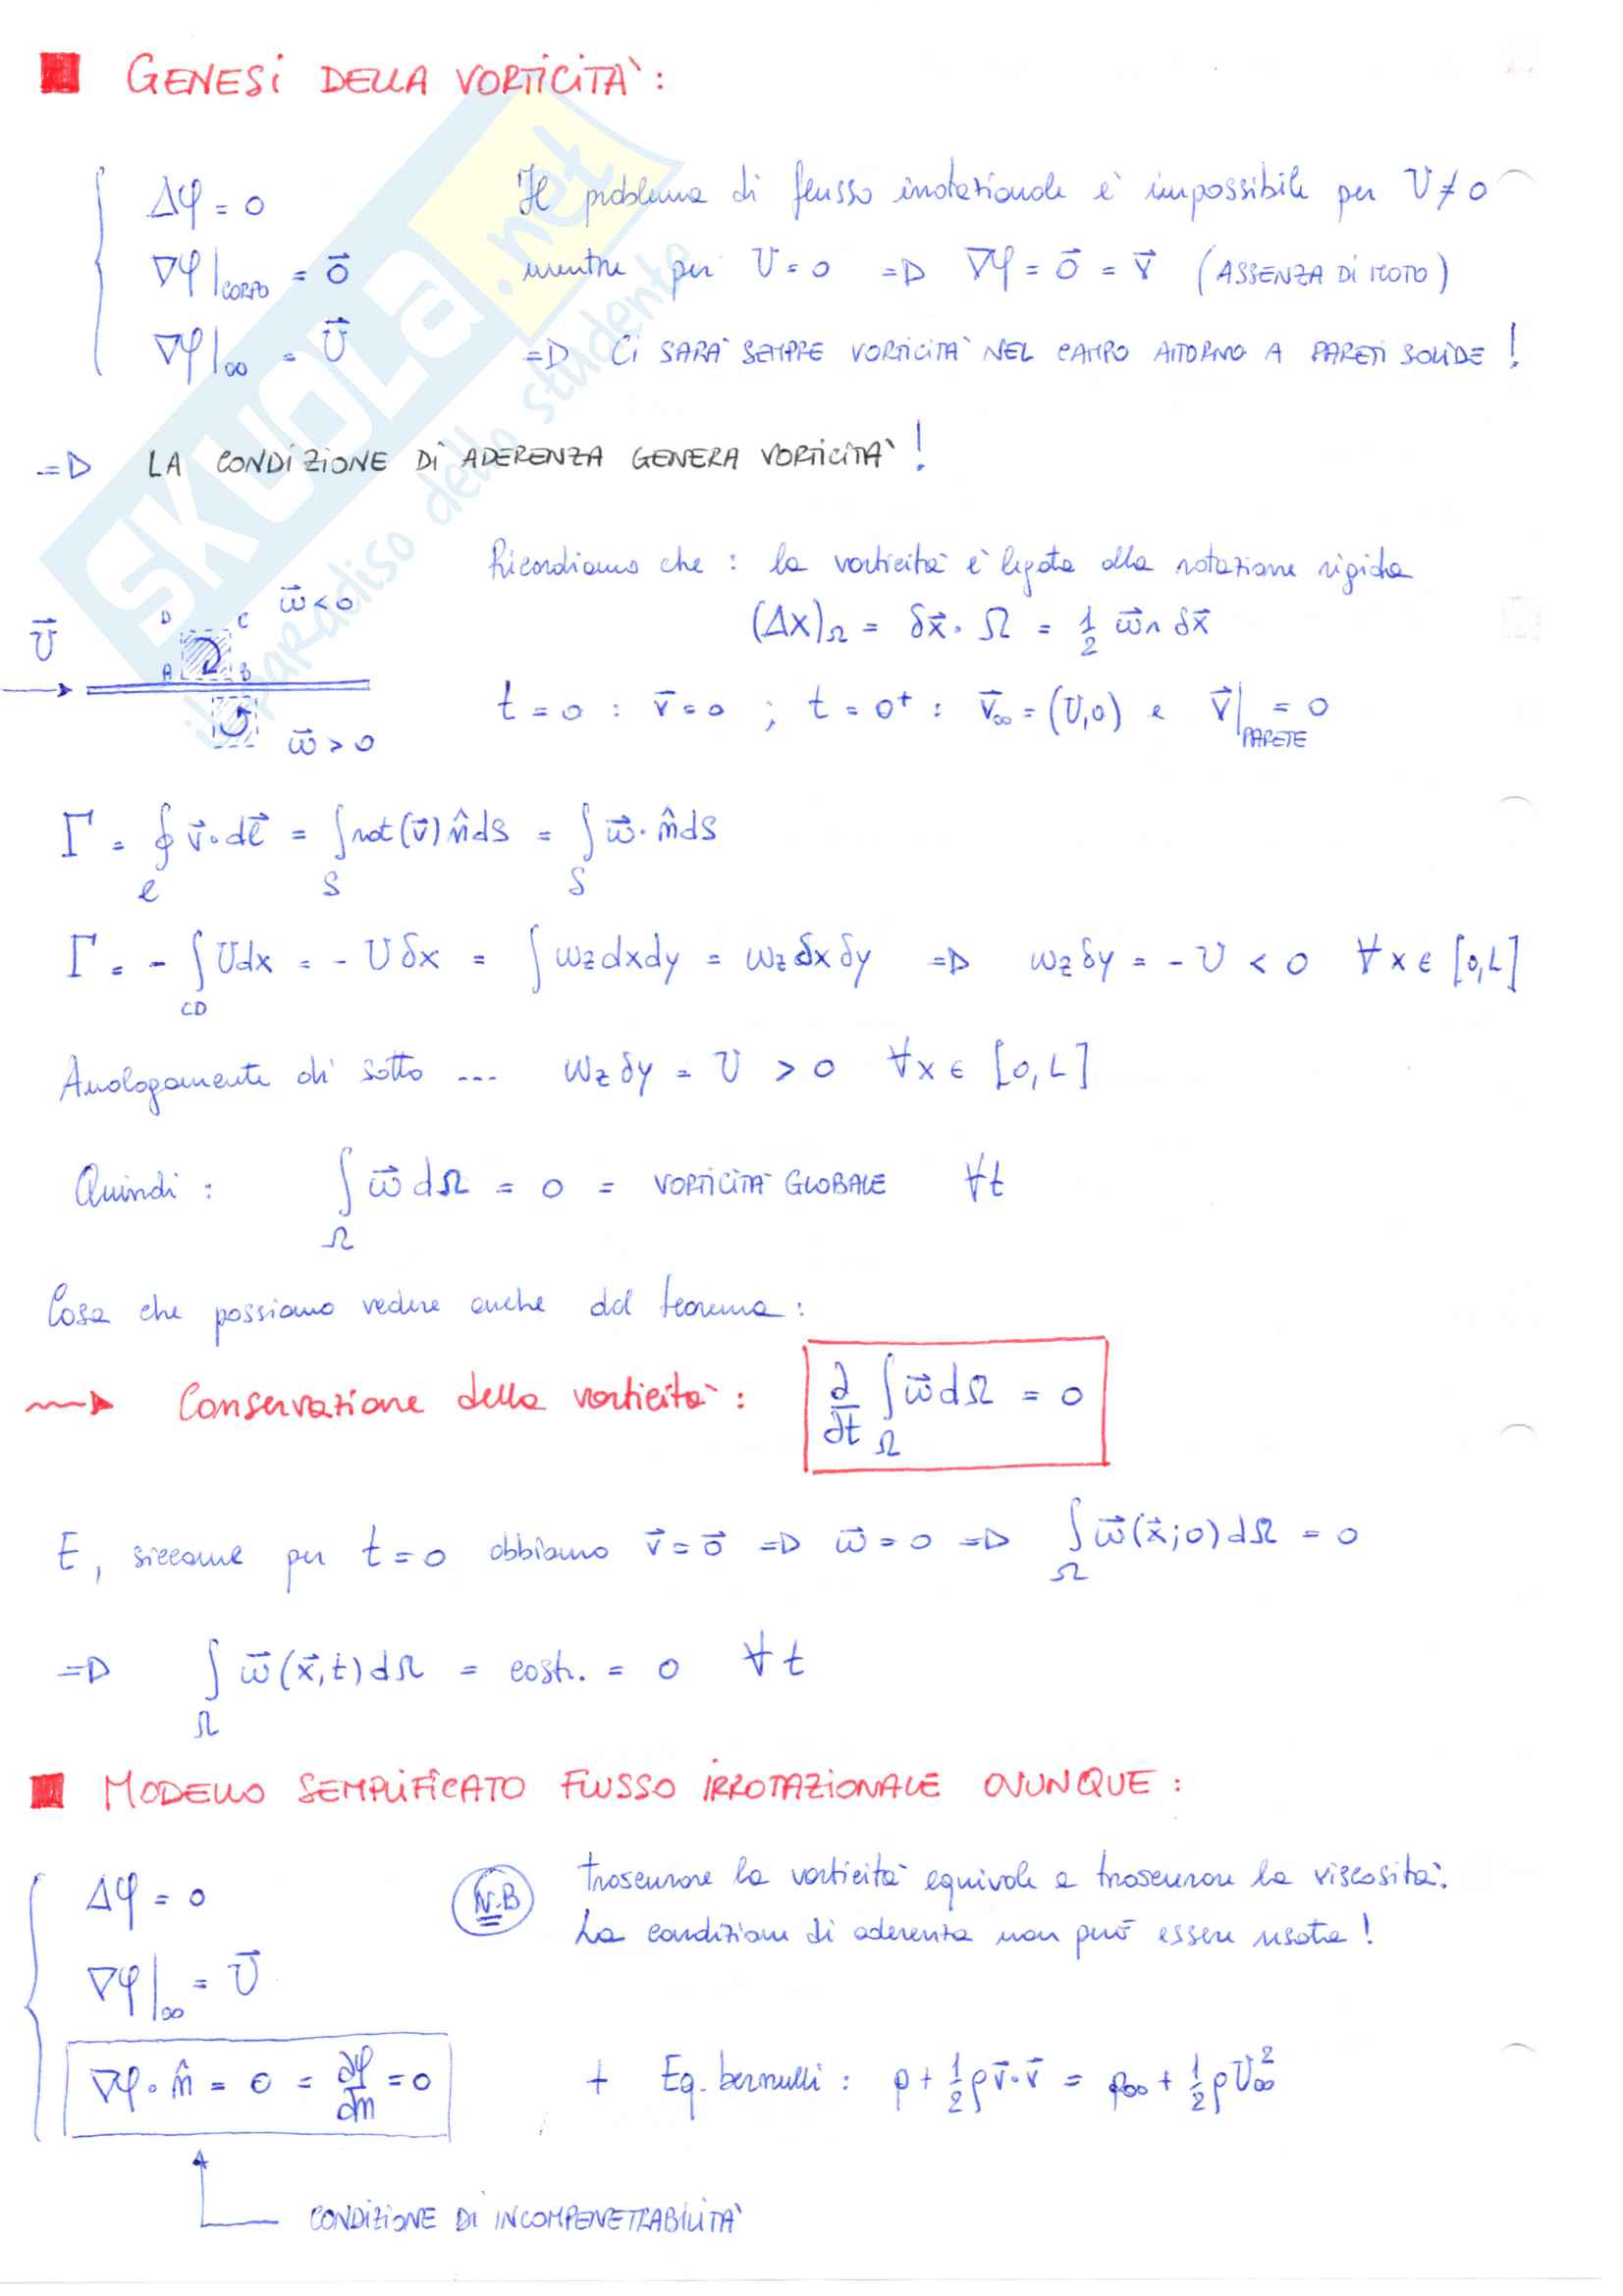 ■ GENESI DELLA VORTICITA' :
Δφ = 0
∇φ|CORPO = 0⃗
∇φ|∞ = U⃗
Il problema di flusso irrotazionale è impossibile per U ≠ 0
mentre per U = 0 => ∇φ = 0⃗ = v⃗ (ASSENZA DI MOTO)
=> CI SARA' SEMPRE VORTICITA' NEL CAMPO ATTORNO A PARETI SOLIDE !
=> LA CONDIZIONE DI ADERENZA GENERA VORTICITA' !
SKUOLA.net
il paradiso dello studente
Ricordiamo che : la vorticità è legata alla rotazione rigida
(Δx)Ω = δx⃗ · Ω = 1/2 ω⃗ ∧ δx⃗
t = 0 : v⃗ = 0 ; t = 0⁺ : v⃗∞ = (U,0) e v⃗|PARETE = 0
U⃗
D C ω⃗ < 0
A B
ω⃗ > 0
Γ = ∮ℓ v⃗ · dℓ⃗ = ∫S rot(v⃗) n̂ dS = ∫S ω⃗ · n̂ dS
Γ = - ∫CD U dx = - U δx = ∫ ωz dx dy = ωz δx δy => ωz δy = - U < 0 ∀ x ∈ [0,L]
Analogamente di sotto ... ωz δy = U > 0 ∀ x ∈ [0,L]
Quindi : ∫Ω ω⃗ dΩ = 0 = VORTICITA' GLOBALE ∀t
Cosa che possiamo vedere anche dal teorema :
Conservazione della vorticità : ∂/∂t ∫Ω ω⃗ dΩ = 0
E, siccome per t = 0 abbiamo v⃗ = 0⃗ => ω⃗ = 0 => ∫Ω ω⃗(x⃗;0) dΩ = 0
=> ∫Ω ω⃗(x⃗,t) dΩ = cost. = 0 ∀ t
■ MODELLO SEMPLIFICATO FLUSSO IRROTAZIONALE OVUNQUE :
Δφ = 0
∇φ|∞ = U⃗
∇φ · n̂ = 0 = ∂φ/∂n = 0
N.B
trascurare la vorticità equivale a trascurare la viscosità.
La condizione di aderenza non può essere usata !
+ Eq. bernulli : p + 1/2 ρ v⃗ · v⃗ = p∞ + 1/2 ρ U∞²
CONDIZIONE DI INCOMPENETRABILITA'